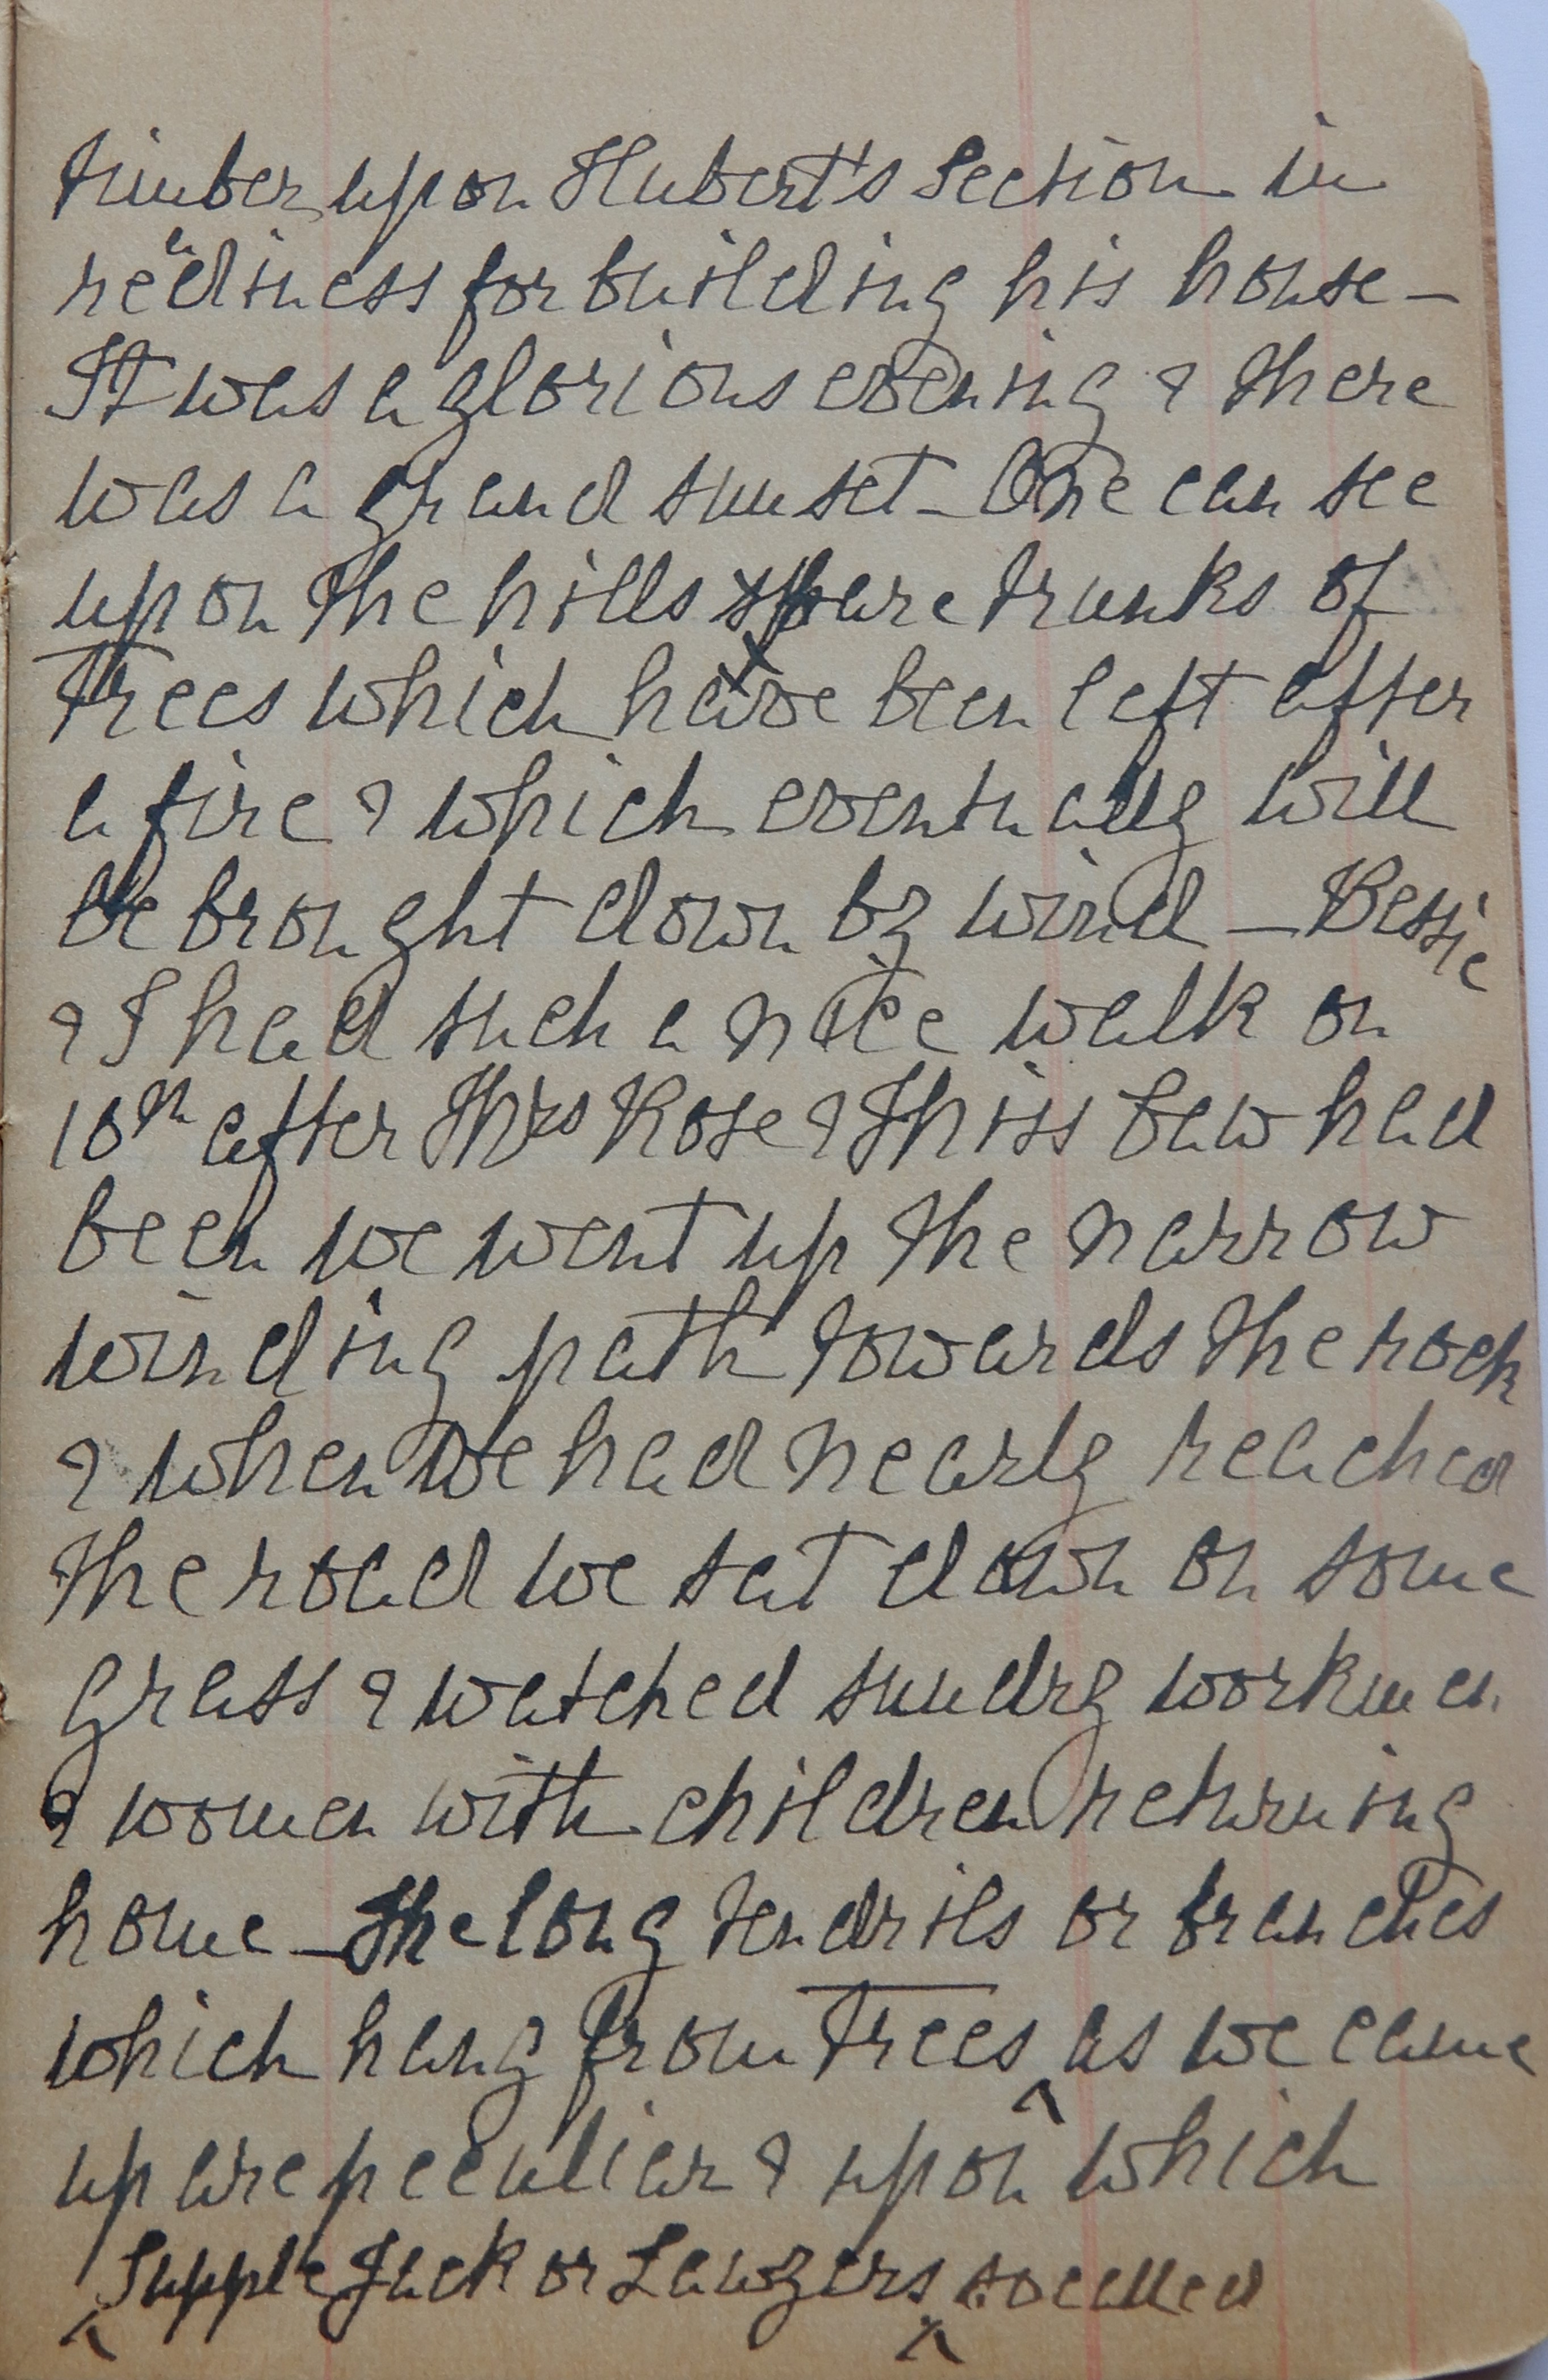 timber upon Hubert's Section in
rediness for building his house -
It was a glorious evening & there
was a grand sunset - One can see
upon the hills spare trunks of
Trees which have been left after
a fire & which eventually will
be brought down by wind - Bessie
& I had such a nice walk on
10th after Mrs Rose & Miss Baw had
been we went up the narrow
winding path towards the rock
& when we had nearly reached
the road we sat down on some
grass & watched sundry workmen
& women with children returning
home - The long tendrils or branches
which hang from Trees ^ as we came
up are peculiar & upon which
^ Supple Jack or Lawyers ^ so called